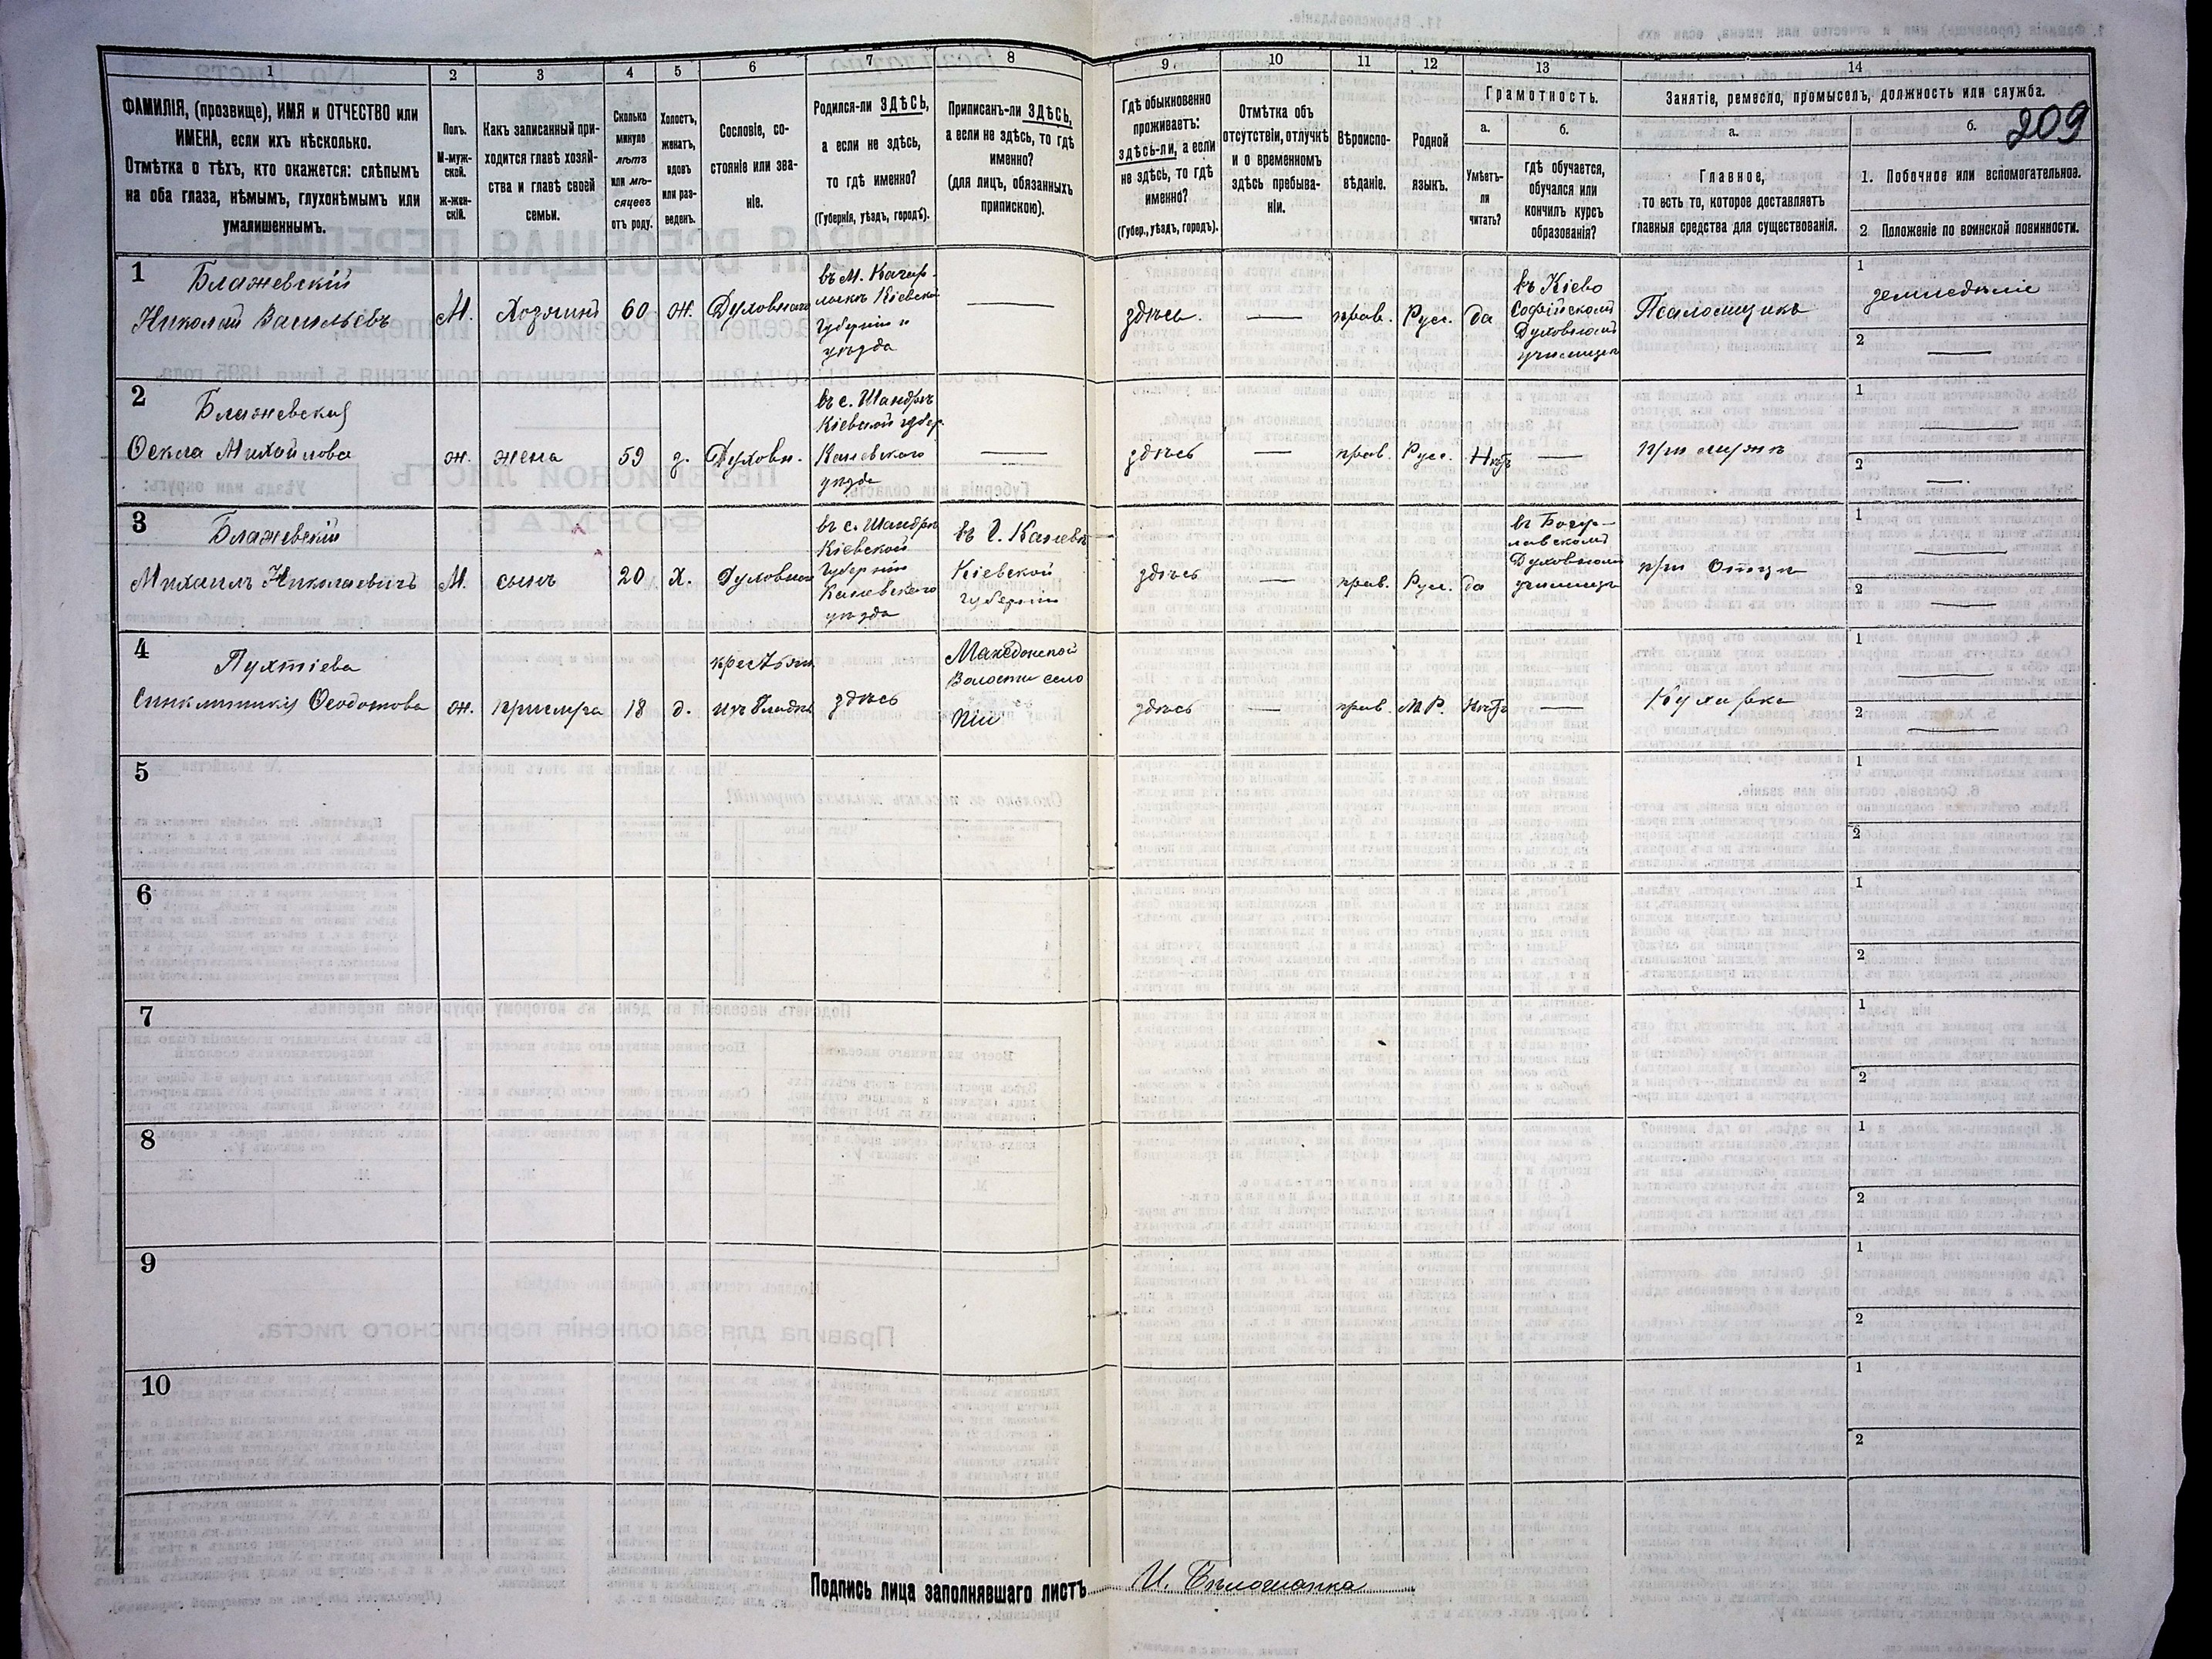 1
2
3
4
5
6
7
8
9
10
11
12
13
14
209
ФАМИЛІЯ, (прозвище), ИМЯ и ОТЧЕСТВО или
ИМЕНА, если ихъ нѣсколько.
Отмѣтка о тѣхъ, кто окажется: слѣпымъ
на оба глаза, нѣмымъ, глухонѣмымъ или
умалишеннымъ.
Полъ.
М-муж-
ской.
ж-жен-
скій.
Какъ записанный при-
ходится главѣ хозяй-
ства и главѣ своей
семьи.
Сколько
минуло
лѣтъ
или мѣ-
сяцевъ
отъ роду.
Холостъ,
женатъ,
вдовъ
или раз-
веденъ.
Сословіе, со-
стояніе или зва-
ніе.
Родился-ли ЗДѢСЬ,
а если не здѣсь,
то гдѣ именно?
(Губернія, уѣздъ, городъ).
Приписанъ-ли ЗДѢСЬ,
а если не здѣсь, то гдѣ
именно?
(для лицъ, обязанныхъ
припискою).
Гдѣ обыкновенно
проживаетъ:
здѣсь-ли, а если
не здѣсь, то гдѣ
именно?
(Губер., уѣздъ, городъ).
Отмѣтка объ
отсутствіи, отлучкѣ
и о временномъ
здѣсь пребыва-
ніи.
Вѣроиспо-
вѣданіе.
Родной
языкъ.
Грамотность.
а.
Умѣетъ-
ли
читать?
б.
Гдѣ обучается,
обучался или
кончилъ курсъ
образованія?
Занятіе, ремесло, промыселъ, должность или служба.
а.
Главное,
то есть то, которое доставляетъ
главныя средства для существованія.
б.
1. Побочное или вспомогательное.
2 Положеніе по воинской повинности.
1
Блажевскій
Николай Васильевъ
М.
Хозяинъ
60
ж.
Духовнаго
въ м. Кагар-
лыкѣ Кіевской
Губерніи и
уѣзда
здѣсь
прав.
Рус.
да
въ Кіево
Софійскомъ
Духовномъ
училищѣ
Псаломщикъ
1
земледѣліе
2
2
Блажевская
Ѳекла Михайлова
ж.
жена
59
з.
Духовн.
въ с. Шандрѣ
Кіевской губер.
Каневского
уѣзда
здѣсь
прав.
Рус.
Нѣтъ
при мужѣ
1
2
3
Блажевскій
Михаилъ Николаевичъ
М.
сынъ
20
Х.
Духовнаго
въ с. Шандрѣ
Кіевской
Губерніи
Каневского
уѣзда
въ г. Каневѣ
Кіевской
губерніи
здѣсь
прав.
Рус.
да
въ Богу-
славскомъ
Духовномъ
училищѣ
при Отцѣ
1
2
4
Пухтіева
Синклитикія Ѳеодотова
ж.
18
д.
крестьян.
здѣсь
Македонской
Волости село
здѣсь
прав.
М.Р.
Нѣтъ
Кухарка
1
2
5
1
2
6
1
2
7
1
2
8
1
2
9
1
2
10
1
2
Подпись лица заполнявшаго листъ